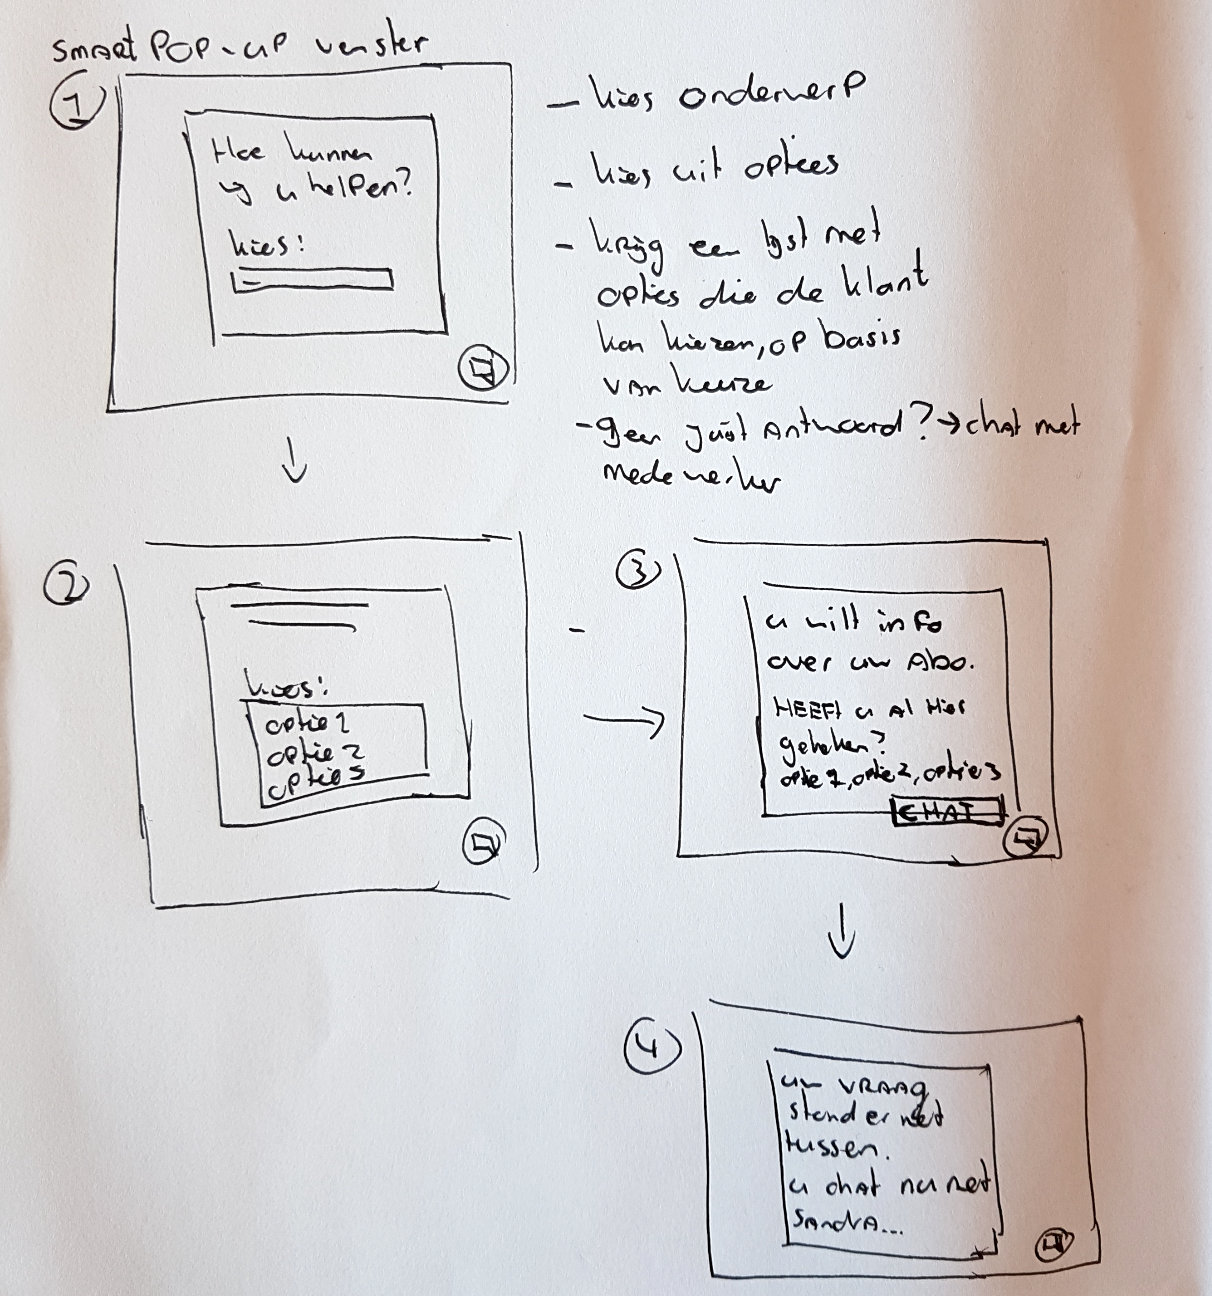 smart POP-UP venster
1
Hoe kunnen
wij u helpen?
kies:
- kies onderwerp
- kies uit opties
- krijg een lijst met
opties die de klant
kan kiezen, op basis
van keuze
- geen juist antwoord? → chat met
medewerker
2
kies:
optie 1
optie 2
optie 3
3
u wilt info
over uw Abo.
HEEFt u Al Hier
gekeken?
optie 1, optie 2, optie 3
CHAT
4
uw VRAAg
stond er niet
tussen.
u chat nu met
SANdRA...